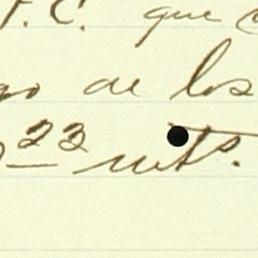 F. C. que
go de los
23 mts.